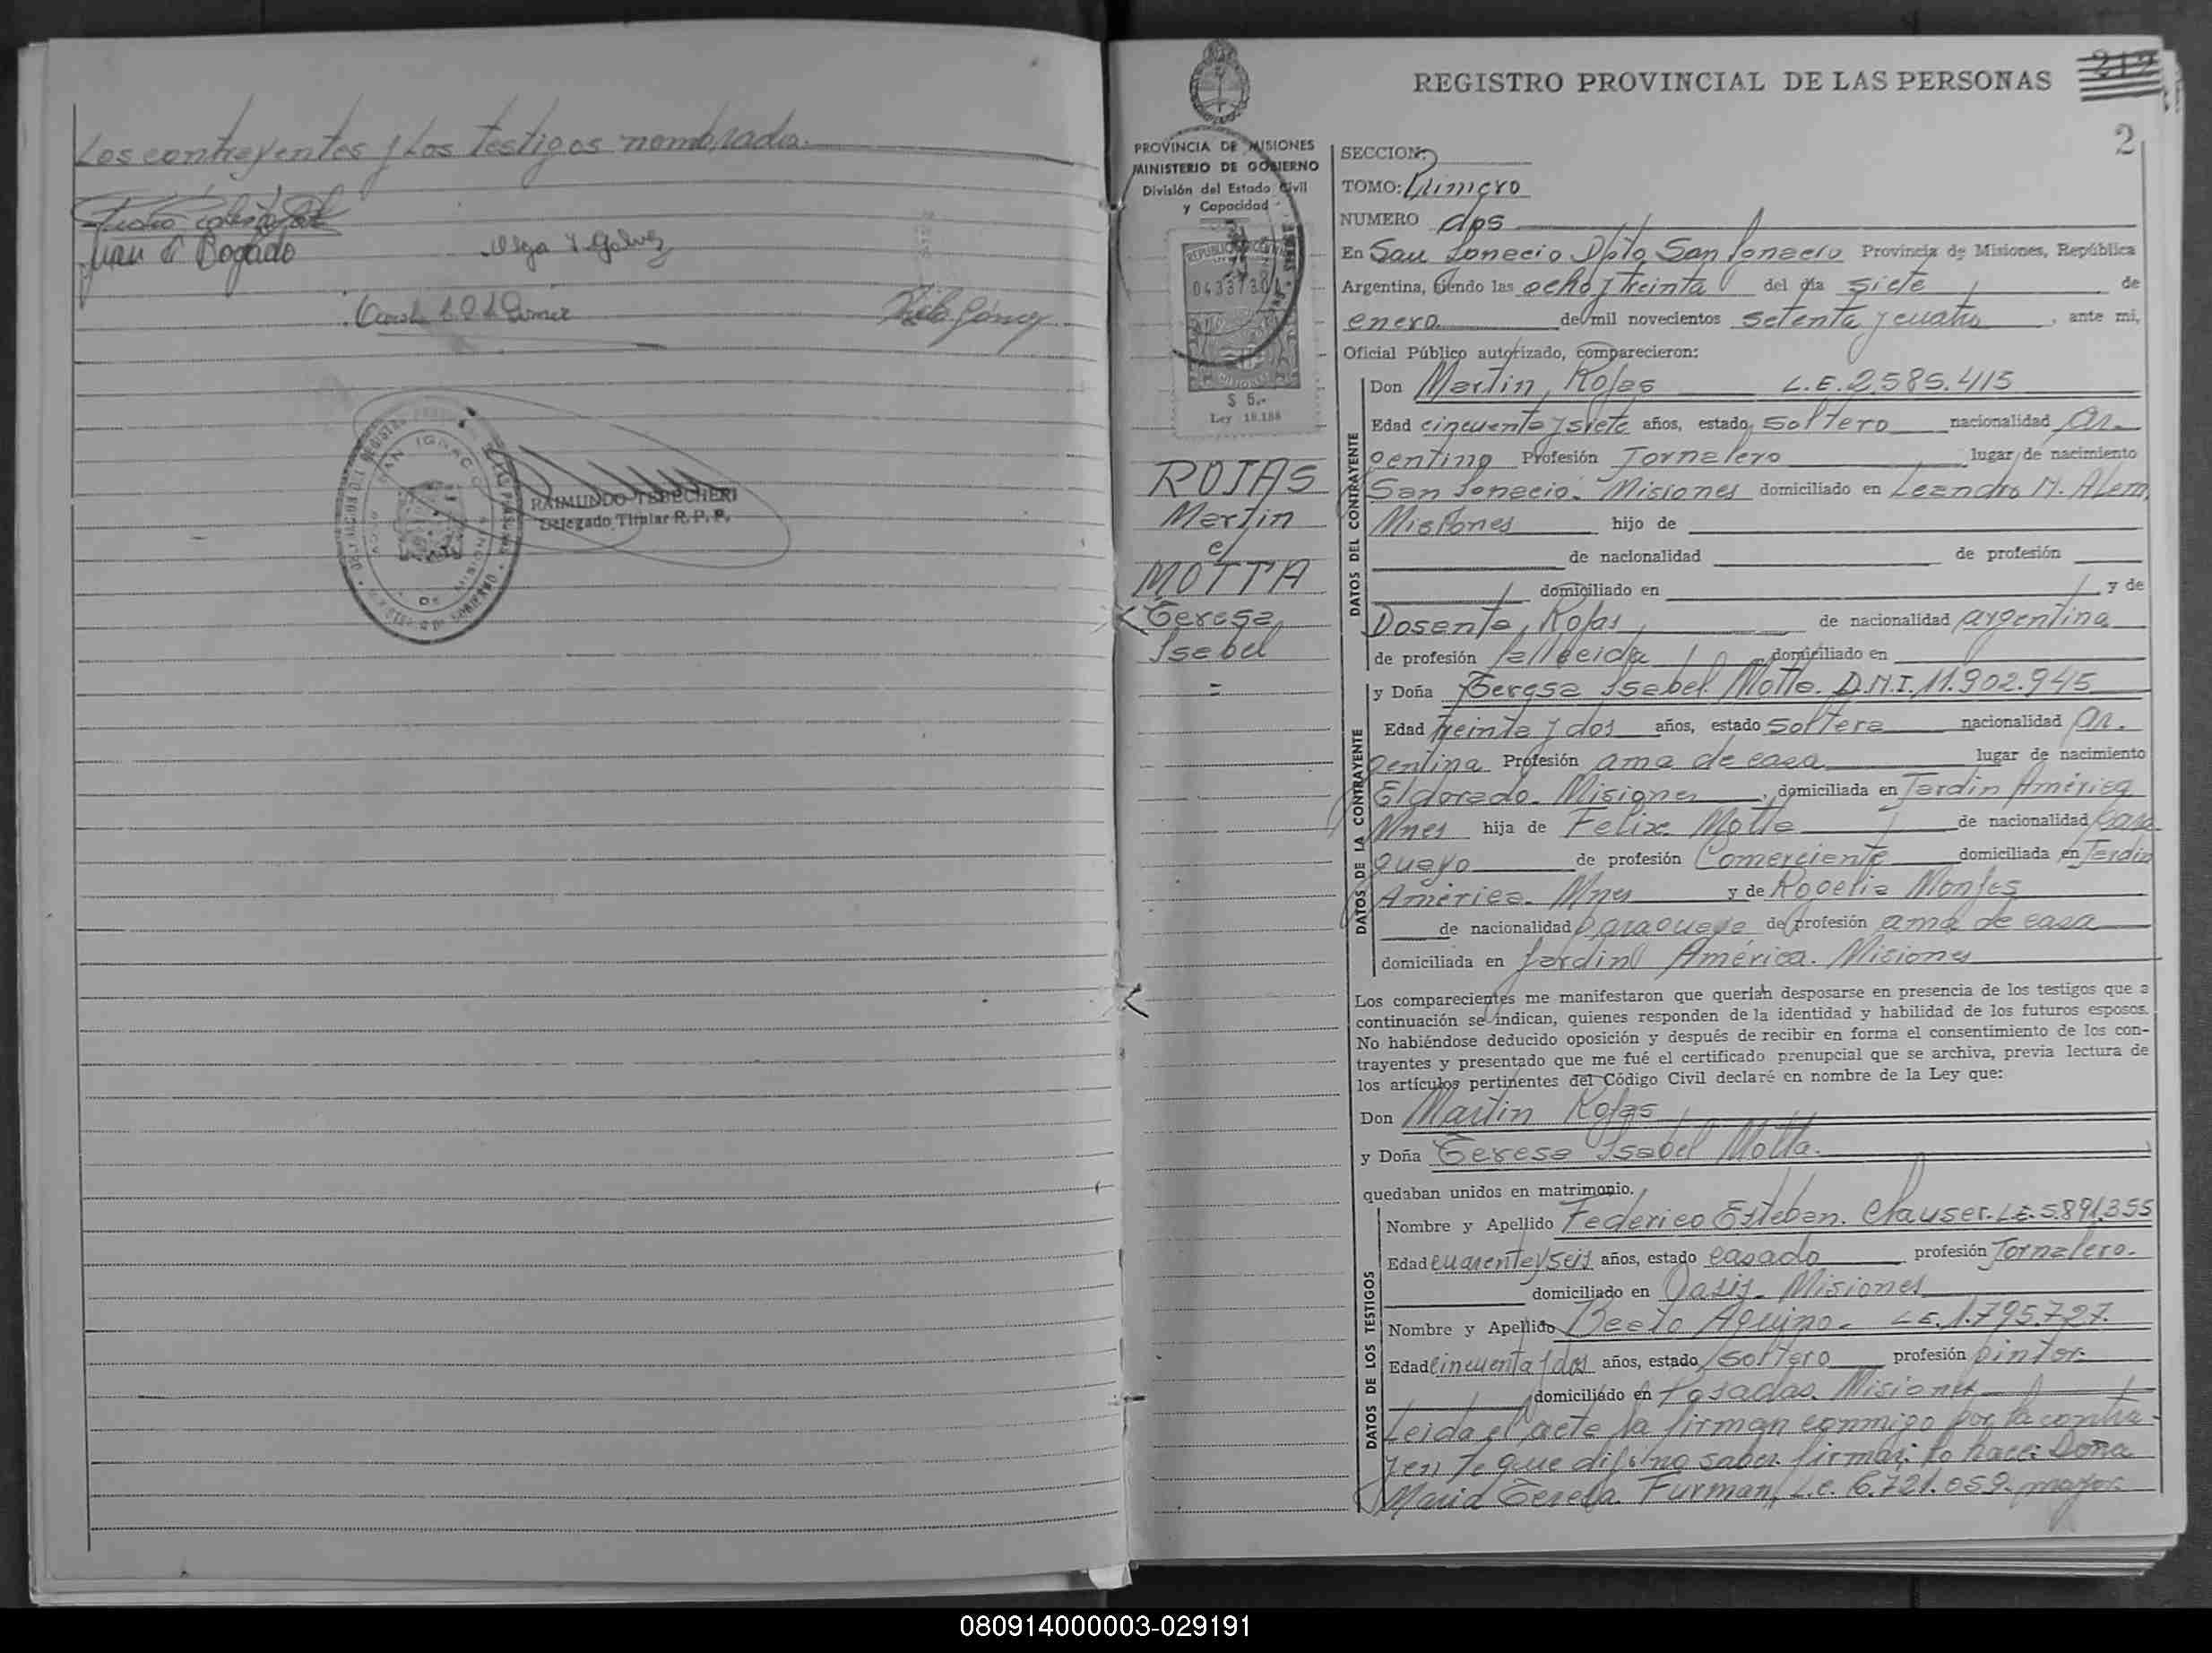 Los contrayentes y los testigos nombrados.
Juan A Bogado
Olga Y Galvez
RAIMUNDO TEDECHERI
Delegado Titular R. P. P.
REGISTRO PROVINCIAL DE LAS PERSONAS
212
2
PROVINCIA DE MISIONES
MINISTERIO DE GOBIERNO
División del Estado Civil
y Capacidad
$ 5.-
Ley 18.188
ROJAS
Martin
c/
MOTTA
Teresa
Isabel
=
SECCION:
TOMO: Primero
NUMERO dos
En San Ignacio Dpto San Ignacio Provincia de Misiones, República
Argentina, siendo las ocho y treinta del día siete de
enero de mil novecientos setenta y cuatro, ante mi,
Oficial Público autorizado, comparecieron:
DATOS DEL CONTRAYENTE
Don Martin Rojas L.E. 2.585.415
Edad cincuenta y siete años, estado soltero nacionalidad ar-
gentino Profesión Jornalero lugar de nacimiento
San Ignacio. Misiones domiciliado en Leandro N. Alem
Misiones hijo de
de nacionalidad de profesión
domiciliado en y de
Dosenta Rojas de nacionalidad argentina
de profesión fallecida domiciliado en
DATOS DE LA CONTRAYENTE
y Doña Teresa Isabel Motta. D.N.I. 11.902.945
Edad treinta y dos años, estado soltera nacionalidad ar-
gentina Profesión ama de casa lugar de nacimiento
Eldorado. Misiones, domiciliada en Jardin América
Mnes hija de Felix Motta de nacionalidad para
guayo de profesión Comerciante domiciliada en Jardin
América. Mnes y de Rogelia Monges
de nacionalidad paraguaya de profesión ama de casa
domiciliada en Jardin América. Misiones
Los comparecientes me manifestaron que querían desposarse en presencia de los testigos que a
continuación se indican, quienes responden de la identidad y habilidad de los futuros esposos.
No habiéndose deducido oposición y después de recibir en forma el consentimiento de los con-
trayentes y presentado que me fué el certificado prenupcial que se archiva, previa lectura de
los artículos pertinentes del Código Civil declaré en nombre de la Ley que:
Don Martin Rojas
y Doña Teresa Isabel Motta.
quedaban unidos en matrimonio.
DATOS DE LOS TESTIGOS
Nombre y Apellido Federico Esteban. Clauser. L.E. 5.891.355
Edad cuarenta y seis años, estado casado profesión Jornalero.
domiciliado en Oasis. Misiones
Nombre y Apellido Beato Aquino. L.E. 1.795.727.
Edad cincuenta y dos años, estado soltero profesión pintor
domiciliado en Posadas. Misiones
Leida el acta la firman conmigo por la contra-
yente que dijo no saber firmar; lo hace: Doña
Maria Teresa Furman, L.C. 6.721.059. mayor
080914000003-029191